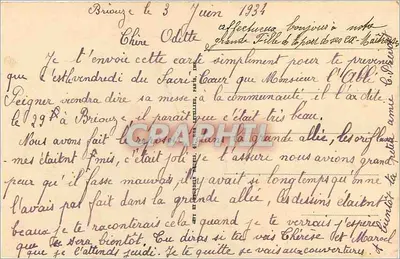 Briouze le 3 Juin 1934
affectueux bonjours à notre
grande fille de la part de ses ex-Maîtresses
Chère Odette
Je t'envoie cette carte simplement pour te prévenir
que c'est vendredi du Sacré-Cœur que Monsieur l'Abbé
Peigner viendra dire sa messe à la communauté il l'a dite
le 29 à Briouze il paraît que c'était très beau.
Nous avons fait le reposoir dans la grande allée, les orifla-
mes étaient mis, c'était joli je t'assure nous avions grand
peur qu'il fasse mauvais, il y avait si longtemps qu'on ne
l'avait pas fait dans la grande allée, les dessins étaient
beaux je te raconterais cela quand je te verrais j'espère
que ce sera bientôt. Tu diras si tu vois Thérèse et Marcel
que je t'attends jeudi. Je te quitte je vais aux couvertures
ta petite amie
CARTE POSTALE